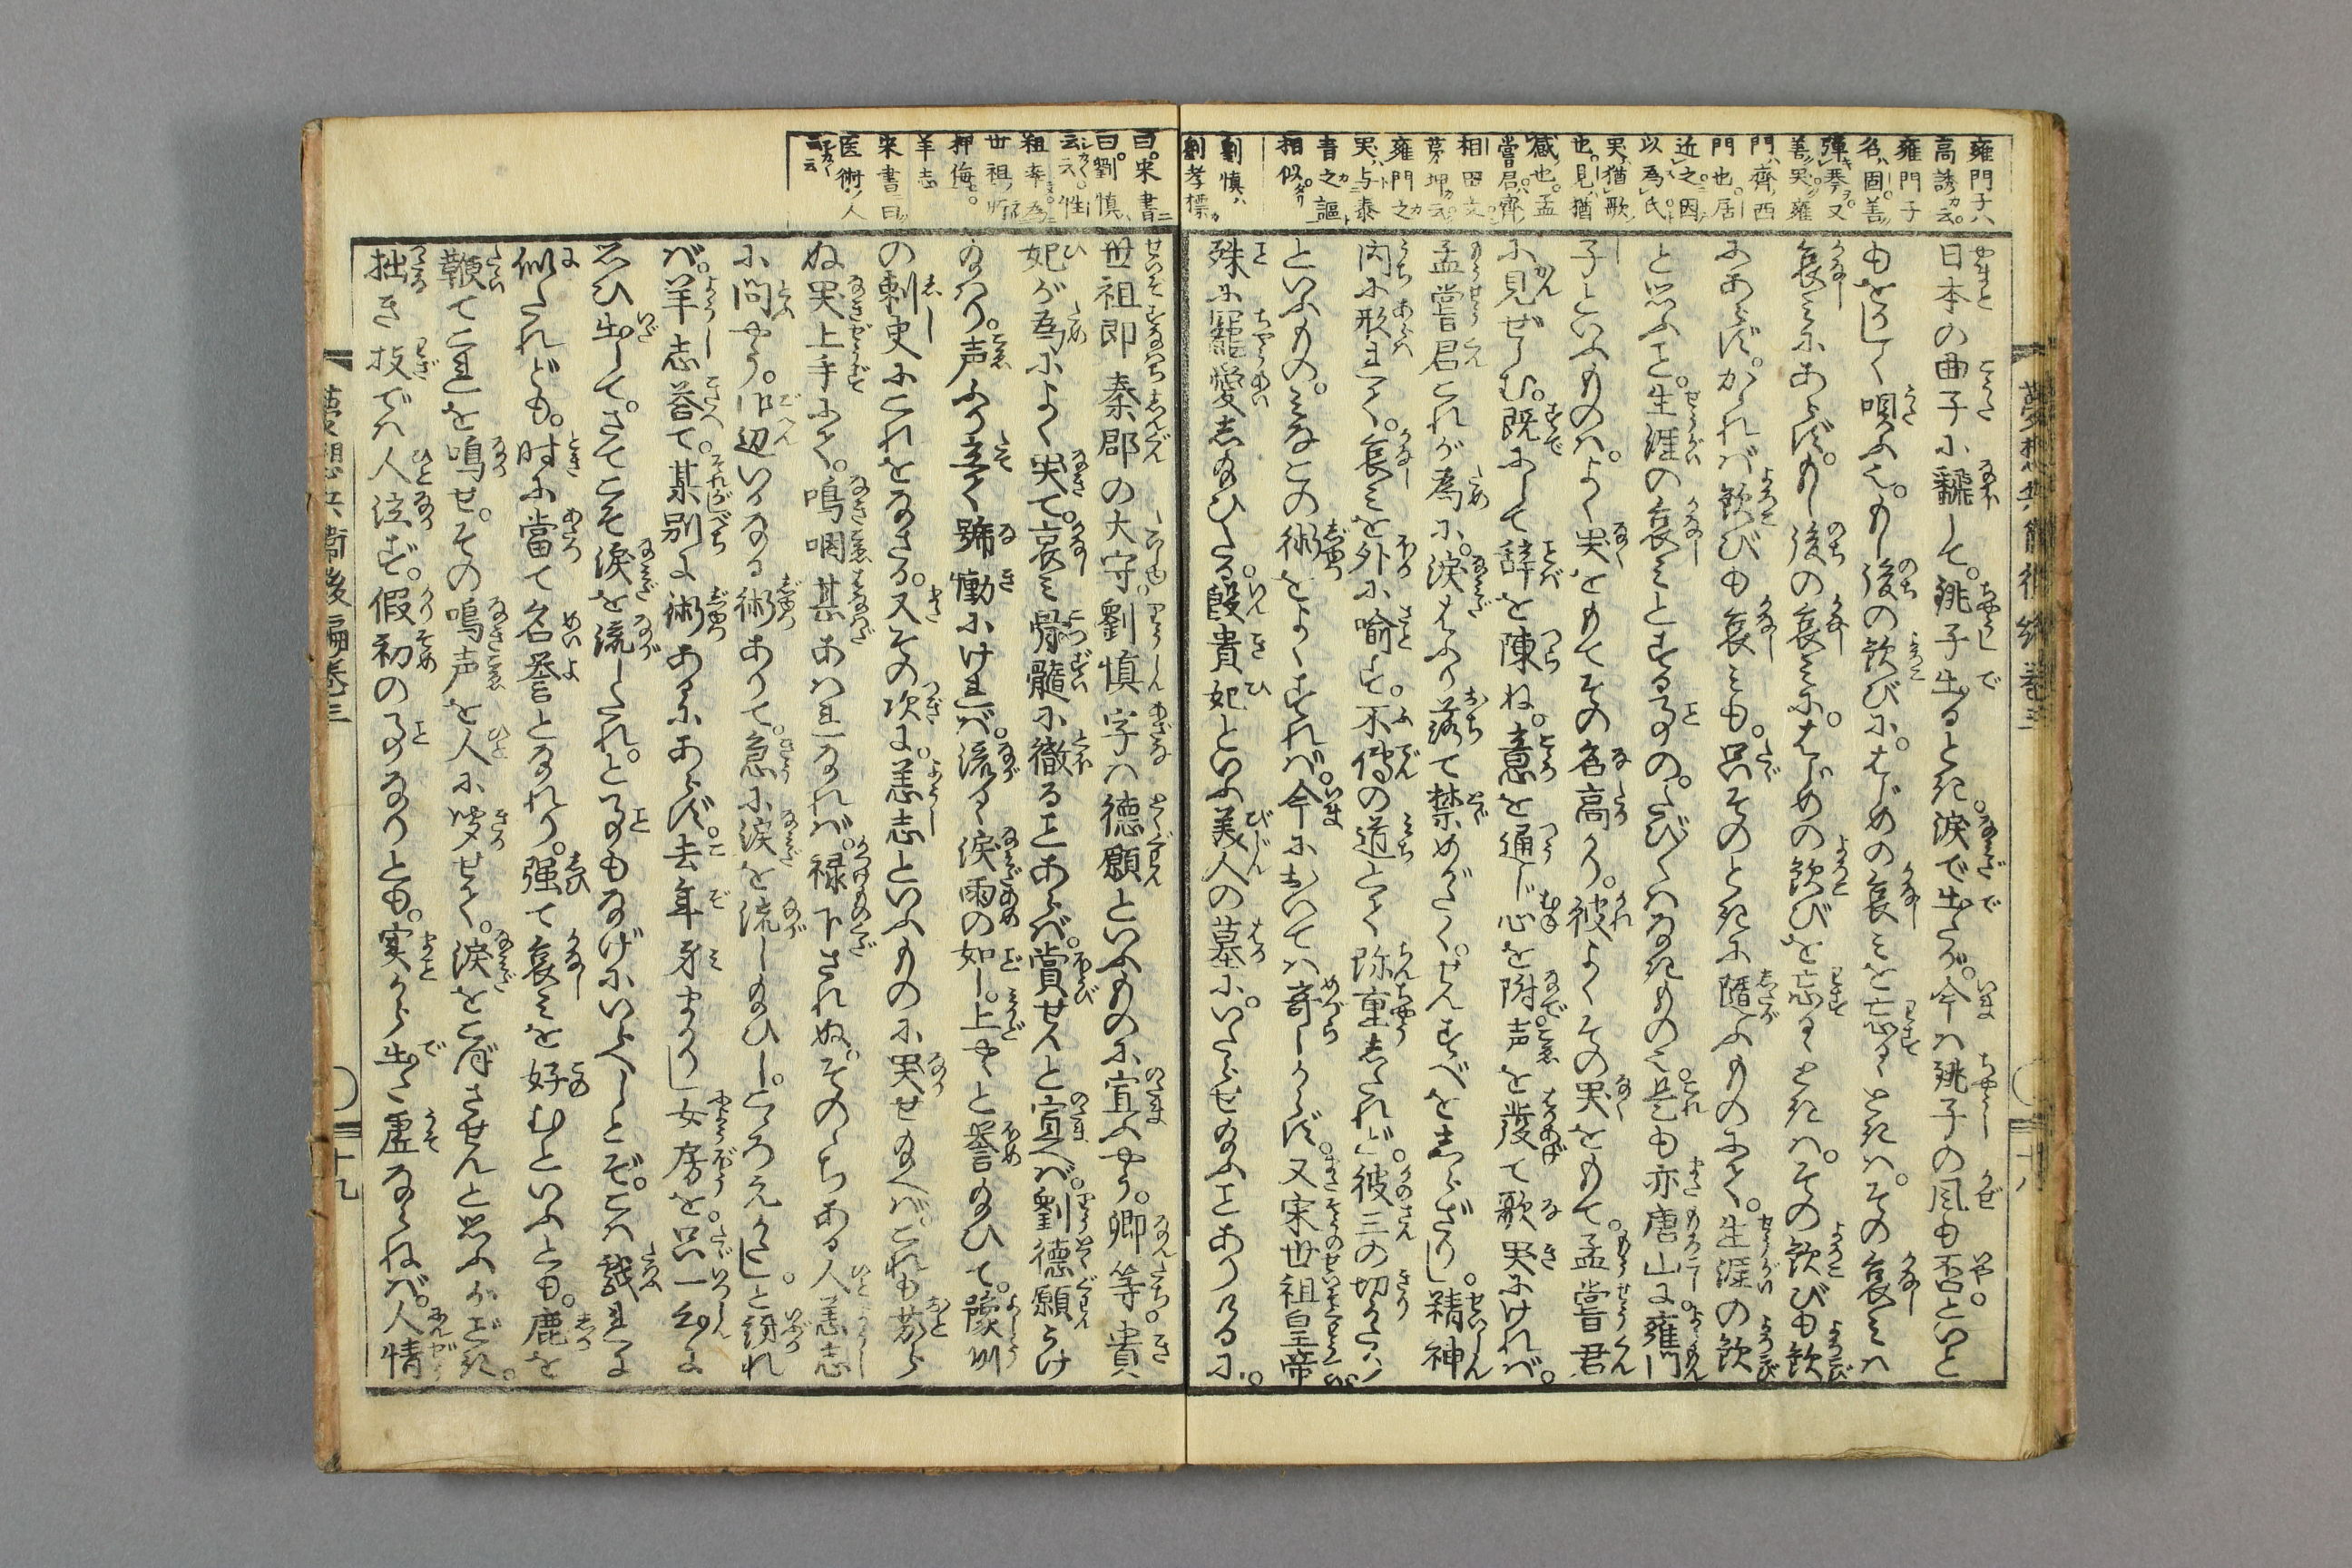 雍門子ハ
高誘カ云
雍門子
名ハ固善
弾琴又
善哭雍
門齊西
門也居
近之因
以為氏
哭猶歌
也見猶
感也孟
嘗君齊
相田文
雍門之
哭与秦
青之謳
相似タリ
劉慎ハ
劉孝標カ
日本の曲子に飜して。銚子出るとき涙で出たが。今は銚子の風も否といと
もをかしく唄ふ也。もし後の歓びに。はじめの哀みを忘るゝときは。その哀みは
哀みにあらず。もし後の哀みに。はじめの歓びを忘るゝときは。その歓びも歓
にあらず。かゝれば歓びも哀みも。只そのときに随ふものにて。生涯の歓
と思ふこと。生涯の哀みとする事の。たび〳〵はなきもの也。是も亦唐山に雍門
子といふものは。よく哭をもてその名高かり。彼よくその哭をもて。孟嘗君
に見ぜらむ。既にして辞を陳ね。意を通じ心を附。声を発て歌哭にければ。
孟嘗君これが為に。涙はふり落て禁めがたく。せんすべをしらざりし。精神
内に形れて。哀みを外に喩す。不傳の道とて珎重したれど。彼三の切かたハ
といふもの。みなこの術をよくすれば。今においては奇しからず。又宋世祖皇帝
殊に寵愛し給ひたる。殷貴妃といふ美人の墓に。いたらせ給ふことありけるに。
曰宋書ニ
曰劉慎
云云性
粗率為
世祖所
狎侮
羊志
宋書曰
医術ノ人
云云
世祖即秦郡の大守劉慎字は徳願といふものに宣ふやう。卿等。貴
妃が為によく哭て。哀み骨髄に徹ることあらば。賞せんと宣へば。劉徳願うけ
給はり。声ふり立て号慟にければ。流るゝ涙雨の如し。上やゝと誉給ひて。豫州
の刺史にこれをなさる。又その次に。羊志といふものに哭せ給へば。これも劣ら
ぬ哭上手にて。鳴咽甚あはれなれば。禄下されぬ。そのゝちある人羊志
に問やう。御辺いかなる術ありて。急に涙を流し給ひし。こゝろえがたしと訝れ
ば。羊志答て。某別に術あるにあらず。去年身まかりし女房を。只一向に
思ひ出して。さてこそ涙を流したれ。と事もなげにいへりしとぞ。こは戯れに
似たれども。時に當て名誉となれり。強て哀みを好むといふとも。鹿を
鞭てこれを鳴せ。その鳴声を人に聞せて。涙をこぼさせんと思ふがごとき。
拙き技では人泣ず。假初の事なりとも。実から出た虚ならねば。人情
夢想兵衛後編巻三
十九